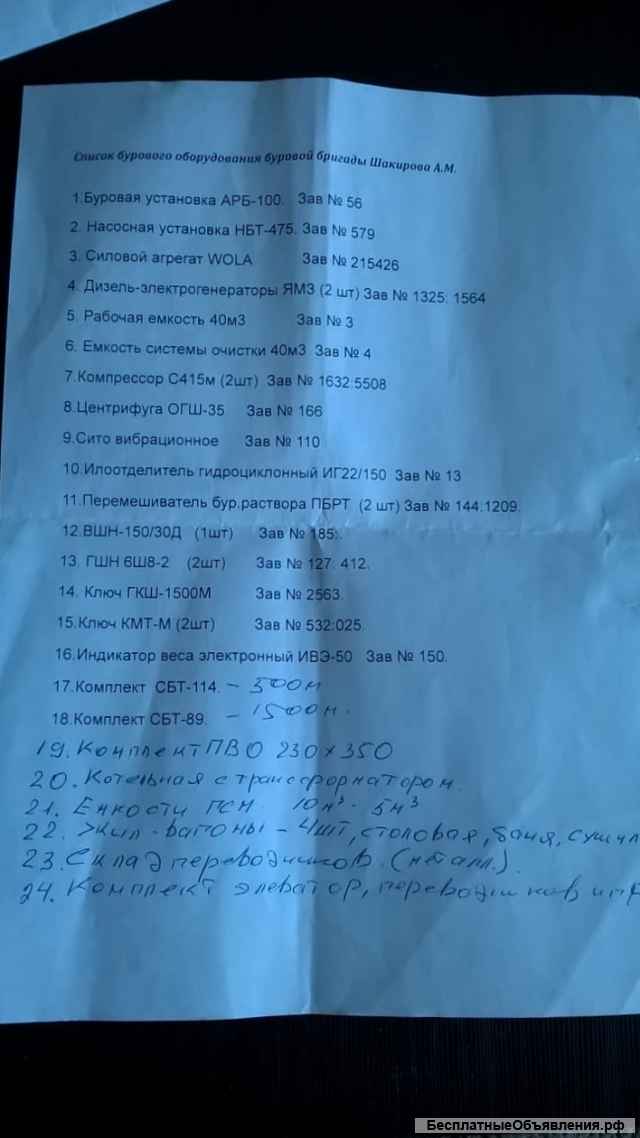 Список бурового оборудования буровой бригады Шакирова А.М.
1.Буровая установка АРБ-100. Зав № 56
2. Насосная установка НБТ-475. Зав № 579
3. Силовой агрегат WOLA Зав № 215426
4. Дизель-электрогенераторы ЯМЗ (2 шт) Зав № 1325: 1564
5. Рабочая емкость 40м3 Зав № 3
6. Емкость системы очистки 40м3 Зав № 4
7.Компрессор С415м (2шт) Зав № 1632:5508
8.Центрифуга ОГШ-35 Зав № 166
9.Сито вибрационное Зав № 110
10.Илоотделитель гидроциклонный ИГ22/150 Зав № 13
11.Перемешиватель бур.раствора ПБРТ (2 шт) Зав № 144:1209.
12.ВШН-150/30Д (1шт) Зав № 185:.
13. ГШН 6Ш8-2 (2шт) Зав № 127: 412.
14. Ключ ГКШ-1500М Зав № 2563.
15.Ключ КМТ-М (2шт) Зав № 532:025.
16.Индикатор веса электронный ИВЭ-50 Зав № 150.
17.Комплект СБТ-114. – 500м
18.Комплект СБТ-89. – 1500м.
19. Комплект ПВО 230х350
20. Котельная с трансформатором.
21. Емкости ГСМ 10м³ - 5м³
22. Жил-вагоны – 4шт, столовая, баня, сушил
23. Склад переводников. (металл.).
24. Комплект элеватор, переводников и пр
БесплатныеОбъявления.рф